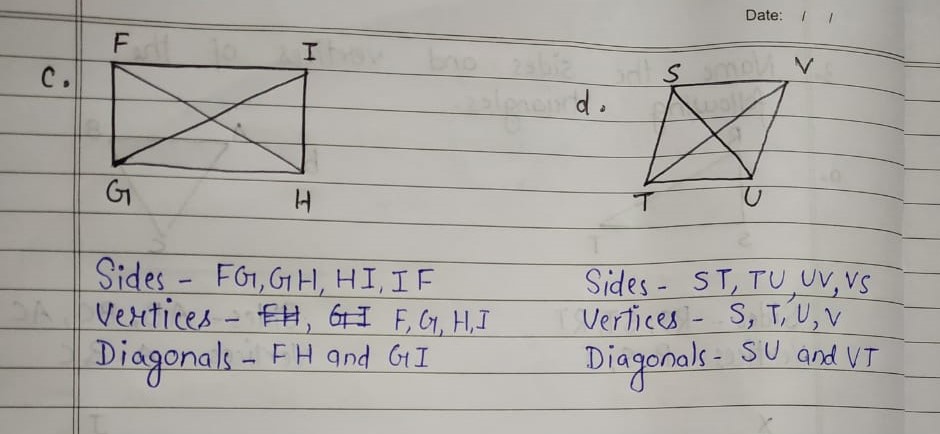 Date: / /
c. F I
G H
Sides - FG, GH, HI, IF
Vertices - FH, GI F, G, H, I
Diagonals - FH and GI
d. S V
T U
Sides - ST, TU, UV, VS
Vertices - S, T, U, V
Diagonals - SU and VT